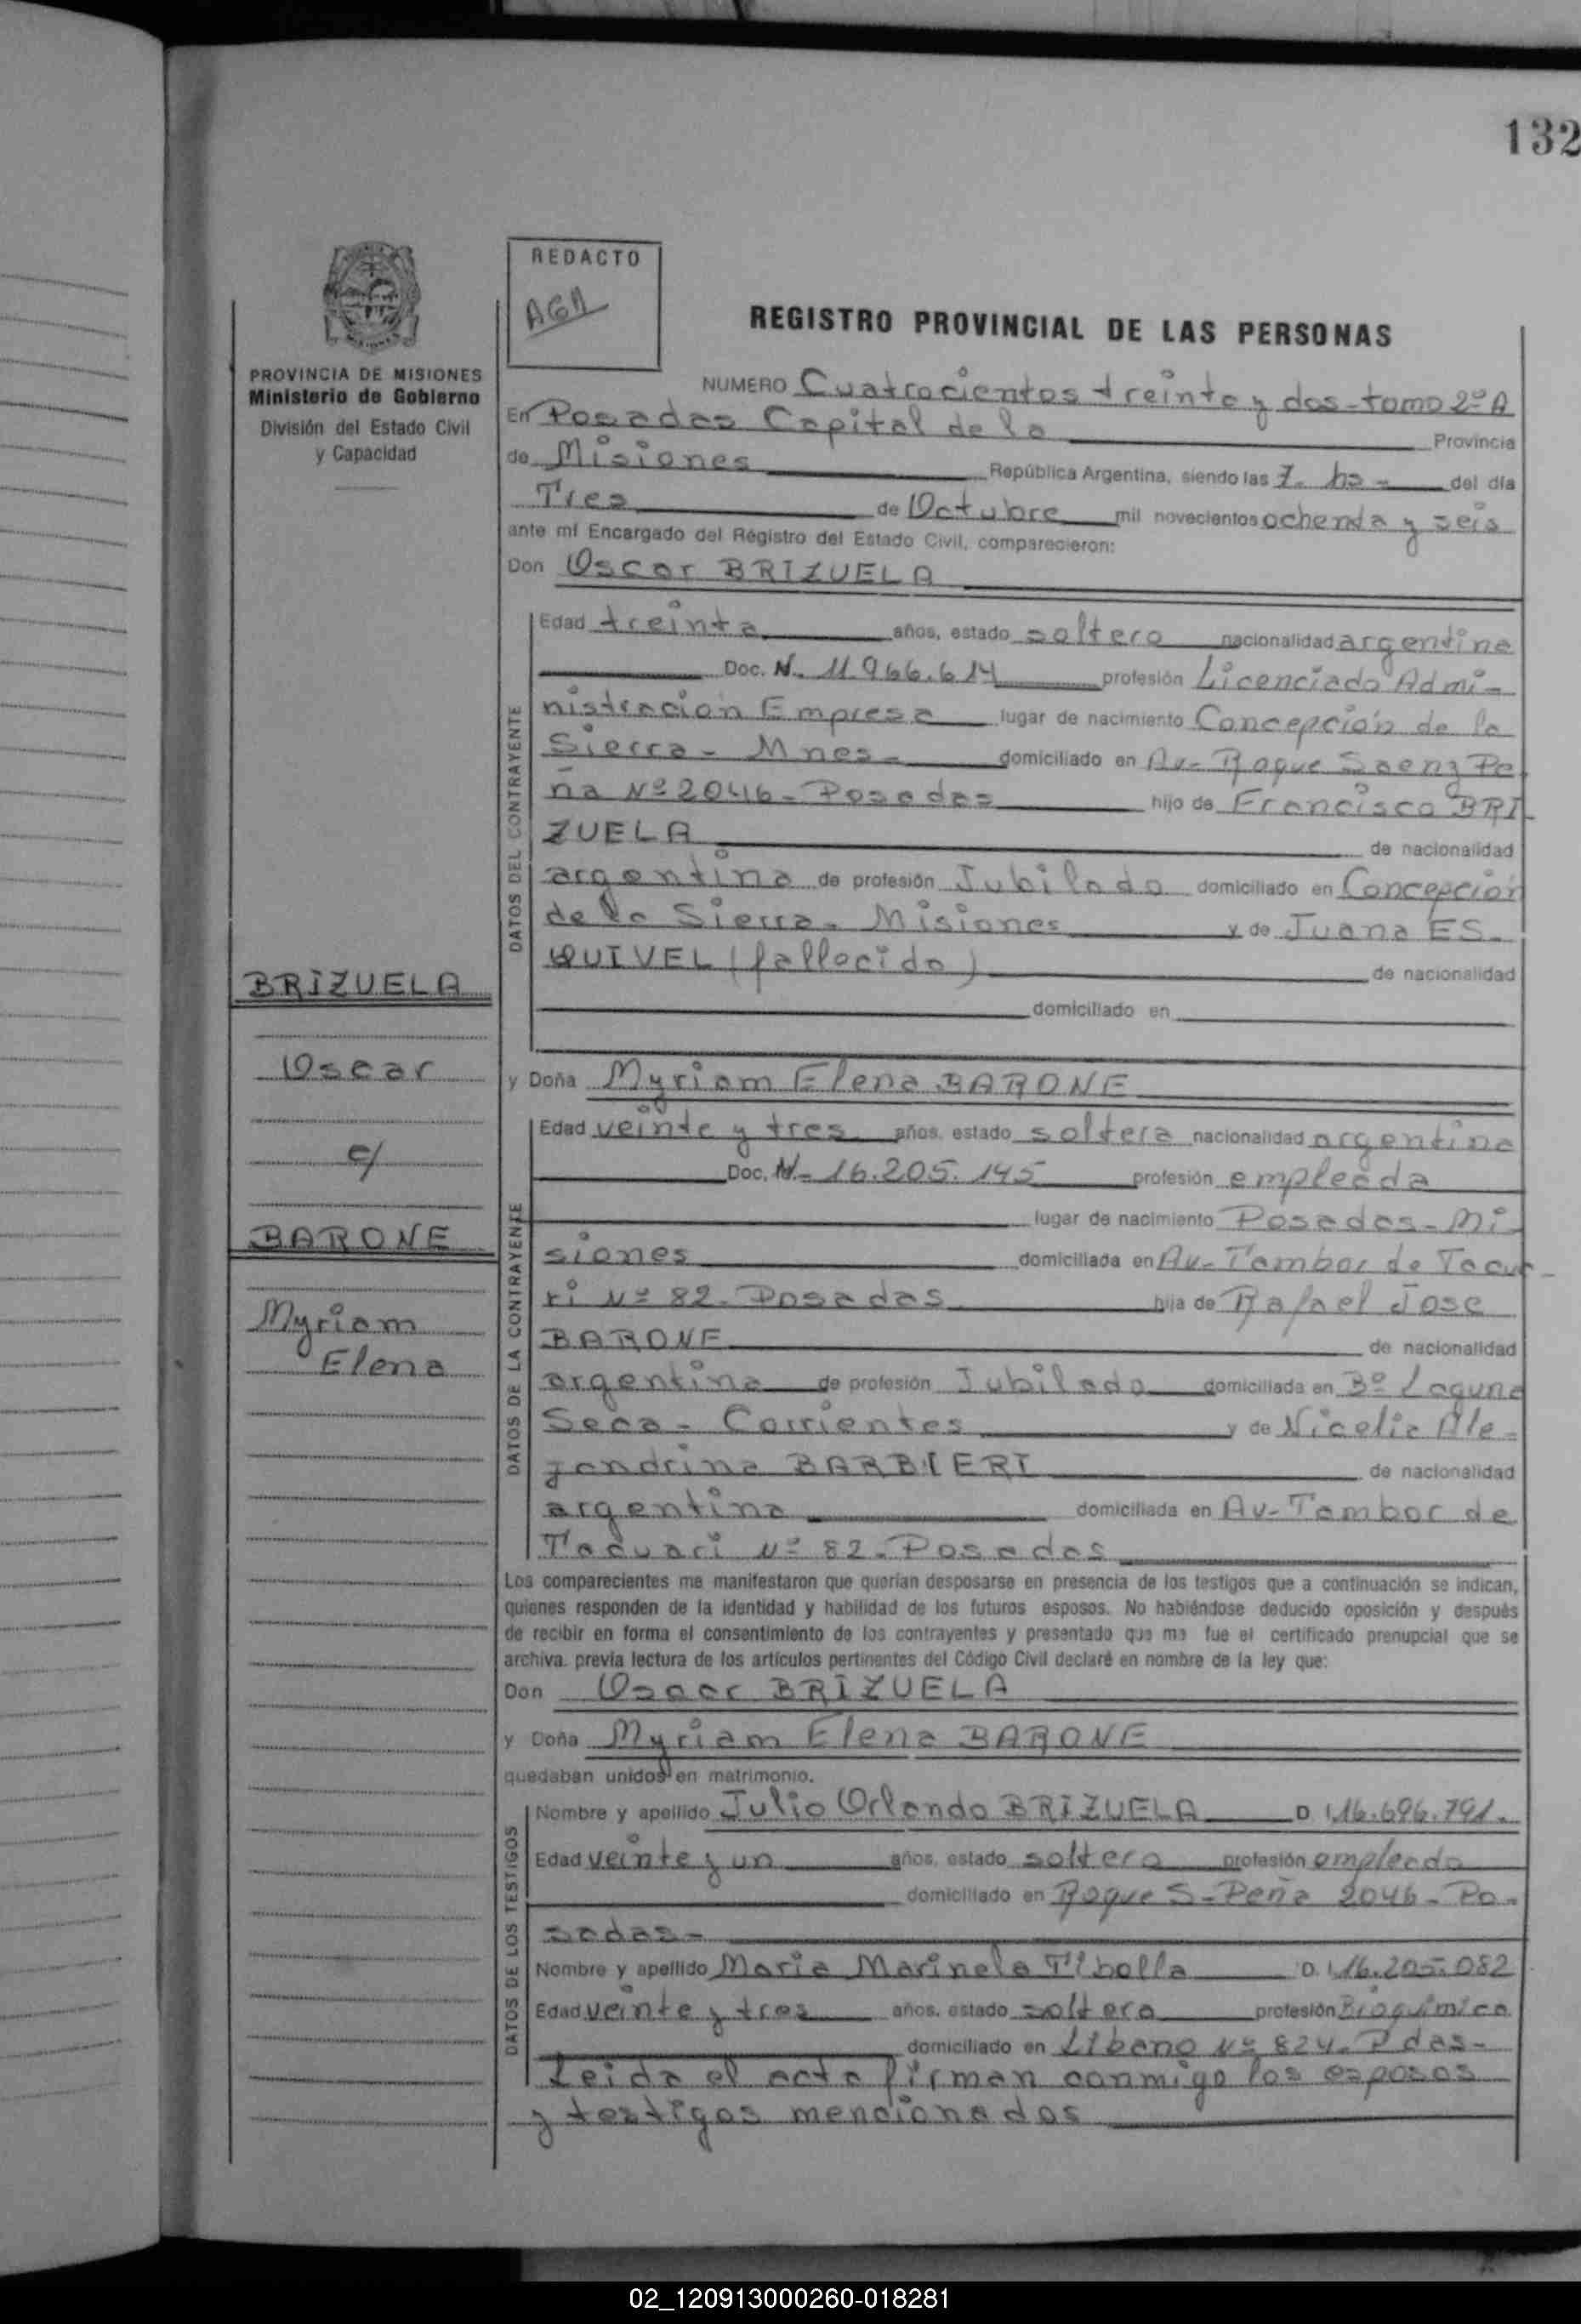 132
REDACTO
AGA
REGISTRO PROVINCIAL DE LAS PERSONAS
PROVINCIA DE MISIONES
Ministerio de Gobierno
División del Estado Civil
y Capacidad
NUMERO Cuatrocientos treinta y dos - tomo 2º A
En Posadas Capital de la Provincia
de Misiones República Argentina, siendo las 7. hs - del día
Tres de Octubre mil novecientos ochenta y seis
ante mí Encargado del Registro del Estado Civil, comparecieron:
Don Oscar BRIZUELA
DATOS DEL CONTRAYENTE
Edad treinta años, estado soltero nacionalidad argentina
Doc. N. 11.966.614 profesión Licenciado Admi-
nistración Empresa lugar de nacimiento Concepción de la
Sierra - Mnes - domiciliado en Av- Roque Saenz Pe
ña Nº 2046 - Posadas hijo de Francisco BRI
ZUELA de nacionalidad
argentina de profesión Jubilado domiciliado en Concepción
de la Sierra - Misiones y de Juana ES-
QUIVEL (fallecido) de nacionalidad
domiciliado en
BRIZUELA
Oscar
c/
BARONE
Myriam
Elena
y Doña Myriam Elena BARONE
DATOS DE LA CONTRAYENTE
Edad veinte y tres años, estado soltera nacionalidad argentina
Doc. N- 16.205.145 profesión empleada
lugar de nacimiento Posadas - Mi
siones domiciliada en Av- Tambor de Tacua-
ri Nº 82 - Posadas hija de Rafael Jose
BARONE de nacionalidad
argentina de profesión Jubilado domiciliada en Bº Laguna
Seca - Corrientes y de Nicelia Ale-
jandrina BARBIERI de nacionalidad
argentina domiciliada en Av- Tambor de
Tacuari Nº 82 - Posadas
Los comparecientes me manifestaron que querían desposarse en presencia de los testigos que a continuación se indican,
quienes responden de la identidad y habilidad de los futuros esposos. No habiéndose deducido oposición y después
de recibir en forma el consentimiento de los contrayentes y presentado que me fue el certificado prenupcial que se
archiva. previa lectura de los artículos pertinentes del Código Civil declaré en nombre de la ley que:
Don Oscar BRIZUELA
y Doña Myriam Elena BARONE
quedaban unidos en matrimonio.
DATOS DE LOS TESTIGOS
Nombre y apellido Julio Orlando BRIZUELA D.I. 16.696.791.
Edad veinte y un años, estado soltero profesión empleado
domiciliado en Roque S. Peña 2046 - Po-
sadas -
Nombre y apellido Maria Marinela Tibolla D.I. 16.205.082
Edad veinte y tres años, estado soltera profesión Bioquímica
domiciliado en Libano Nº 824 - Pdas-
Leida el acta firman conmigo los esposos
y testigos mencionados
02_120913000260-018281